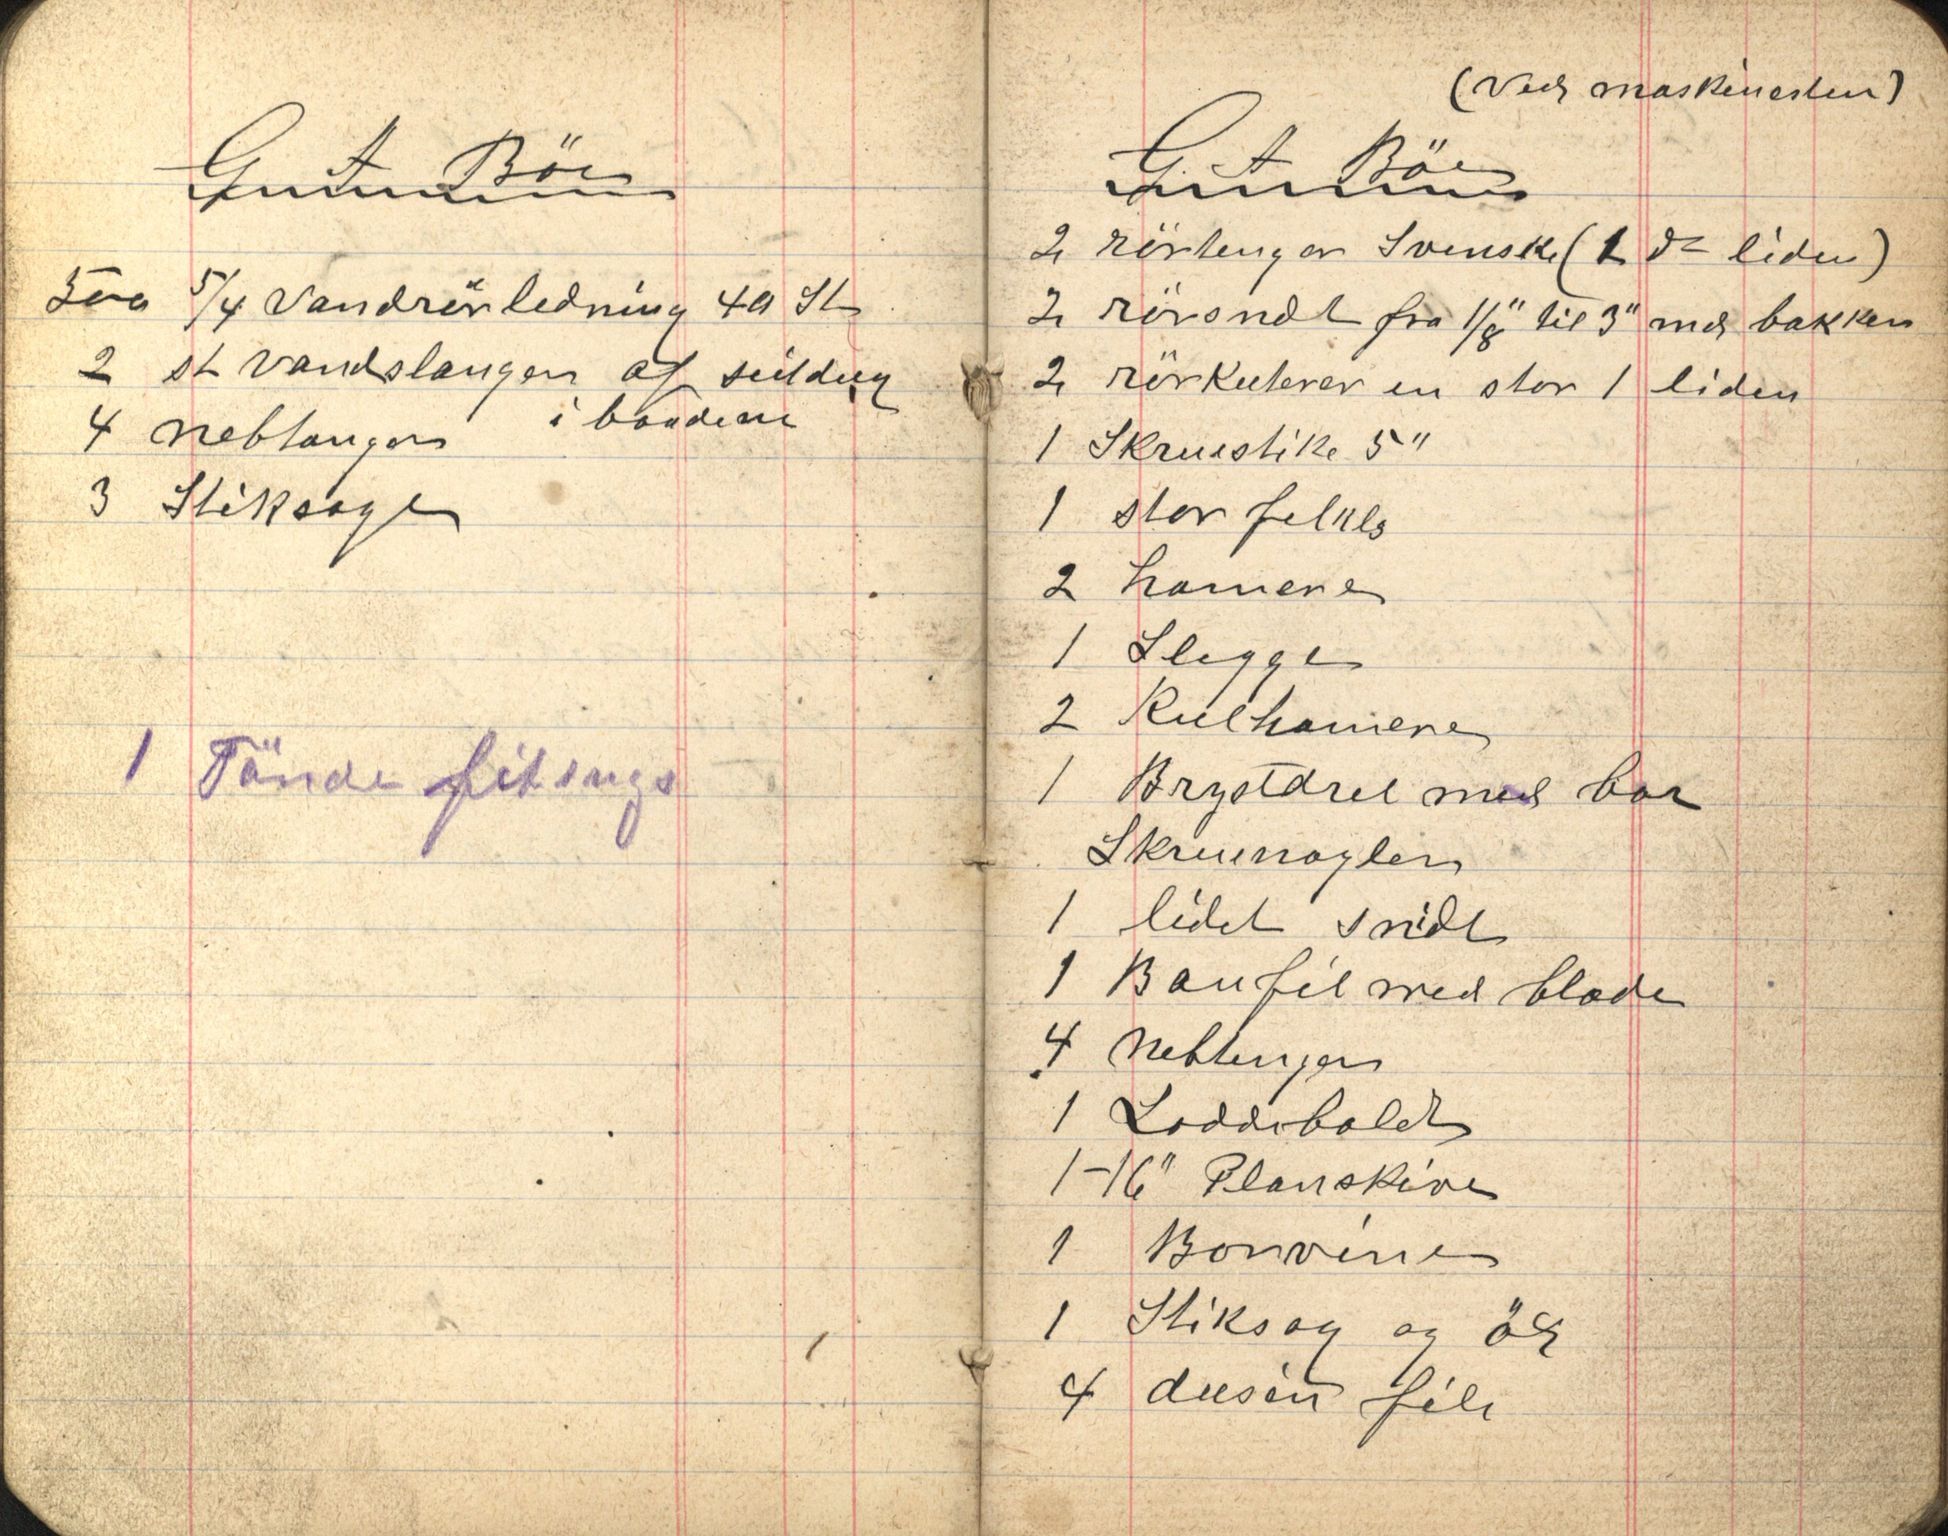 G. A Böe
500 5/4 Vandrörledning 40 St
2 st Vandslanger af seildug
i baadene
4 Nebtanger
3 Stiksage
1 Tönde fitings
(Ved maskinesten)
G. A Böe
2 rörtenger Svenske (1 do liden)
2 rörsndt fra 1/8" til 3" med bakker
2 rörkuterer en stor 1 liden
1 Skruestike 5"
1 stor
2 hamere
1 Slegge
2 Kulhamere
1 Brystdrel med bor
Skruenogler
1 lidet snidt
1 Baufil med blade
4 Nebtenger
1 Loddeboldt
1-16" Planskive
1 Borvine
1 Stiksag og öks
4 dusin file